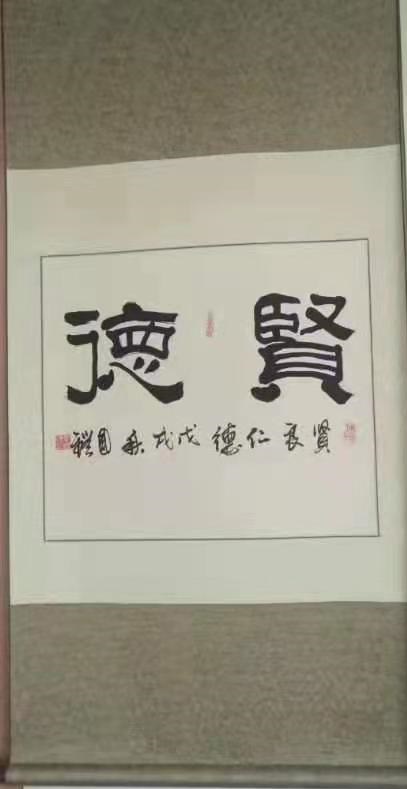 賢德
贤良仁德戊戌秋月